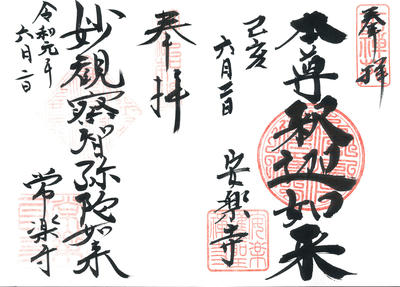 奉拝
本尊釈迦如来
己亥
六月二日
安楽寺
奉拝
妙観察智弥陀如来
令和元年
六月二日
常楽寺